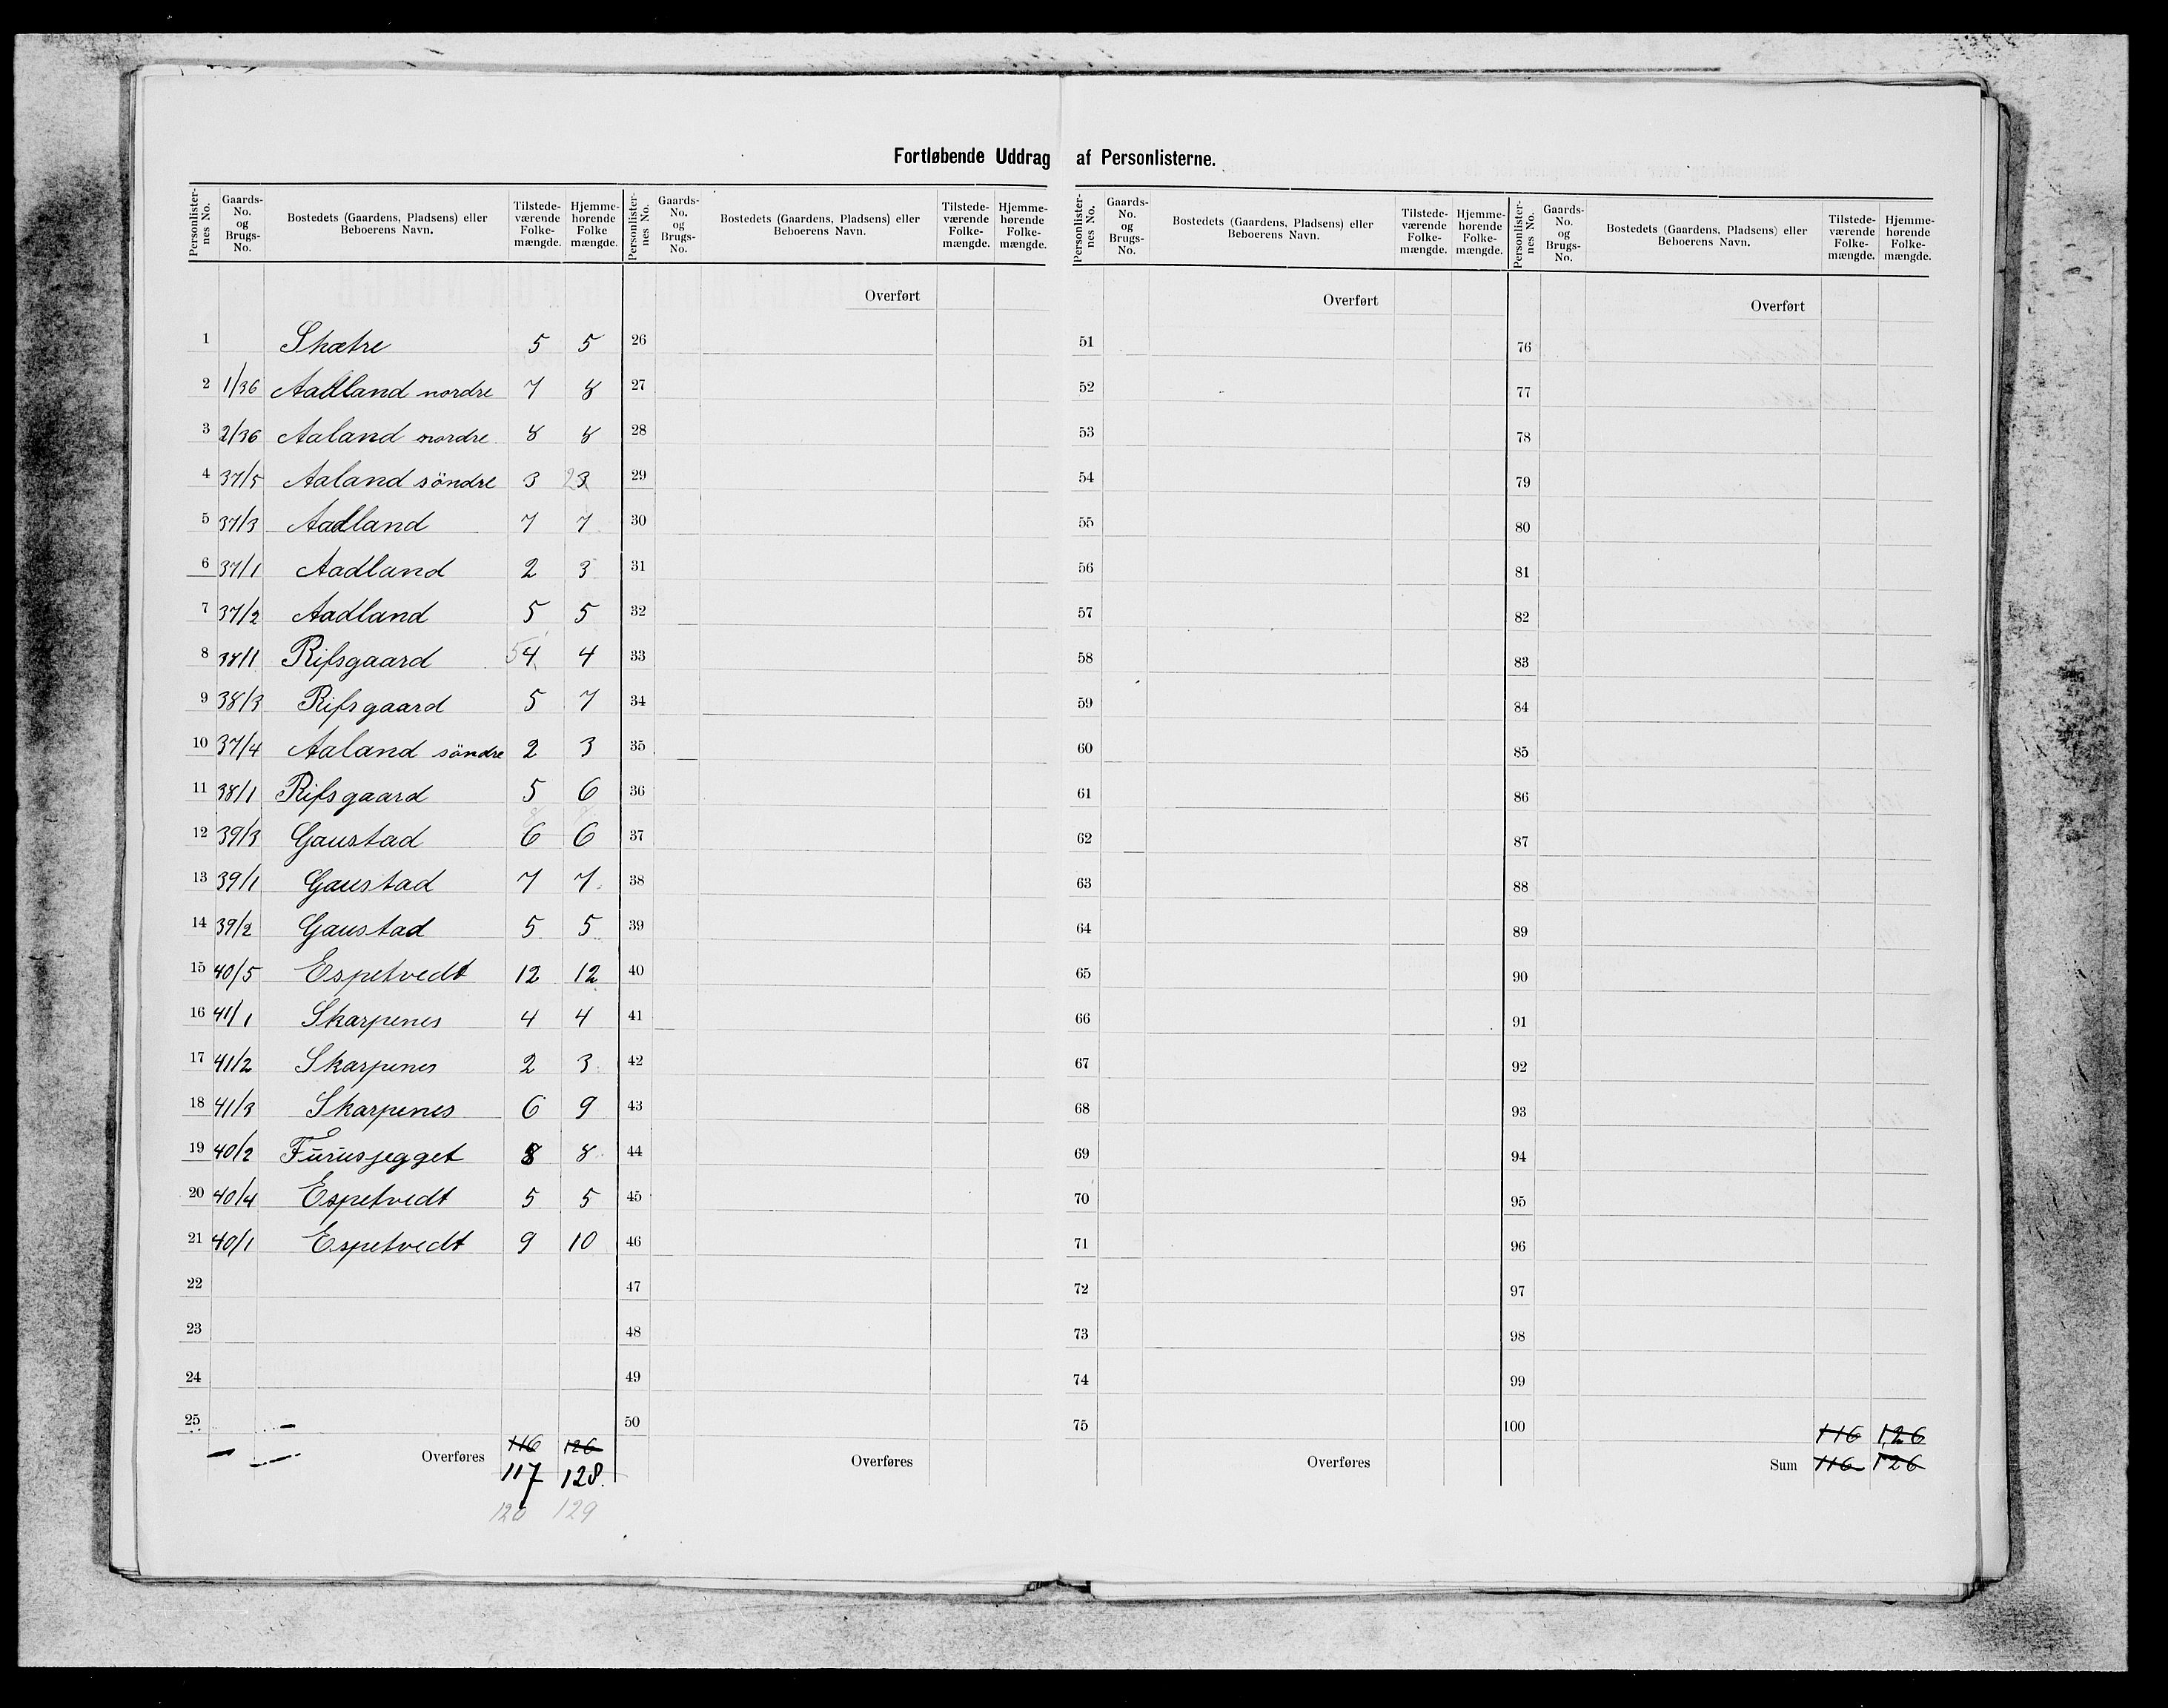 Fortløbende Uddrag af Personlisterne.
Personlister-nes No. | Gaards-No. og Brugs-No. | Bostedets (Gaardens, Pladsens) eller Beboerens Navn. | Tilstede-værende Folke-mængde. | Hjemme-hørende Folke mængde.
1 Skætre 5 5
2 1/36 Aadland nordre 7 8
3 2/36 Aaland nordre 8 8
4 37/5 Aaland söndre 3 2 3
5 37/3 Aadland 7 7
6 37/1 Aadland 2 3
7 37/2 Aadland 5 5
8 38/1 Rifsgaard 5 4 4
9 38/3 Rifsgaard 5 7
10 37/4 Aaland söndre 2 3
11 38/1 Rifsgaard 5 6
12 39/3 Gaustad 6 6
13 39/1 Gaustad 7 7
14 39/2 Gaustad 5 5
15 40/5 Espetvedt 12 12
16 41/1 Skarpenes 4 4
17 41/2 Skarpenes 2 3
18 41/3 Skarpenes 6 9
19 40/2 Furusjegget 8 8
20 40/4 Espetvedt 5 5
21 40/1 Espetvedt 9 10
22
23
24
25
Overføres 116 126
117 128.
120 129
Personlister-nes No. | Gaards-No. og Brugs-No. | Bostedets (Gaardens, Pladsens) eller Beboerens Navn. | Tilstede-værende Folke-mængde. | Hjemme-hørende Folke-mængde.
Overført
26
27
28
29
30
31
32
33
34
35
36
37
38
39
40
41
42
43
44
45
46
47
48
49
50
Overføres
Personlister-nes No. | Gaards-No. og Brugs-No. | Bostedets (Gaardens, Pladsens) eller Beboerens Navn. | Tilstede-værende Folke-mængde. | Hjemme-hørende Folke-mængde.
Overført
51
52
53
54
55
56
57
58
59
60
61
62
63
64
65
66
67
68
69
70
71
72
73
74
75
Overføres
Personlister-nes No. | Gaards-No. og Brugs-No. | Bostedets (Gaardens, Pladsens) eller Beboerens Navn. | Tilstede-værende Folke-mængde. | Hjemme-hørende Folke-mængde.
Overført
76
77
78
79
80
81
82
83
84
85
86
87
88
89
90
91
92
93
94
95
96
97
98
99
100
116 126
Sum 116 126